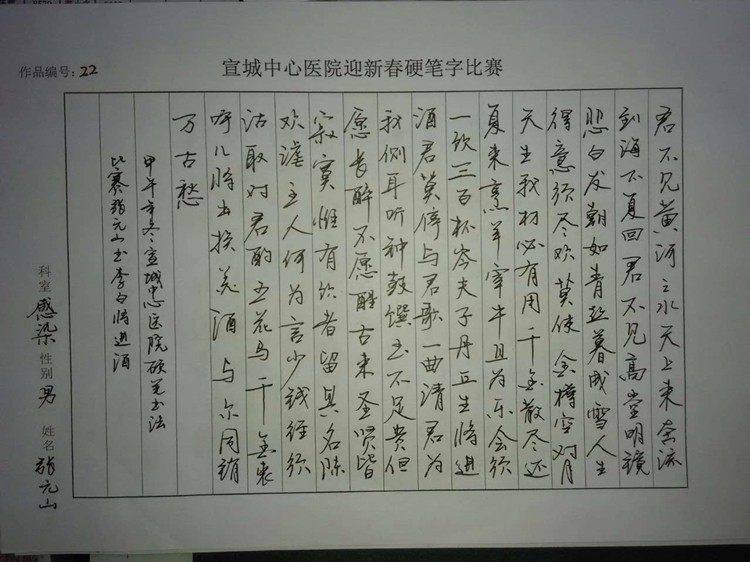 作品编号: 22
宣城中心医院迎新春硬笔字比赛
君不见黄河之水天上来奔流
到海不复回君不见高堂明镜
悲白发朝如青丝暮成雪人生
得意须尽欢莫使金樽空对月
天生我材必有用千金散尽还
复来烹羊宰牛且为乐会须
一饮三百杯岑夫子丹丘生将进
酒君莫停与君歌一曲请君为
我侧耳听钟鼓馔玉不足贵但
愿长醉不愿醒古来圣贤皆
寂寞惟有饮者留其名陈
欢谑主人何为言少钱径须
沽取对君酌五花马千金裘
呼儿将出换美酒与尔同销
万古愁
甲午年冬宣城中心医院硬笔书法
比赛张元山书李白将进酒
科室 感染 性别 男 姓名 张元山